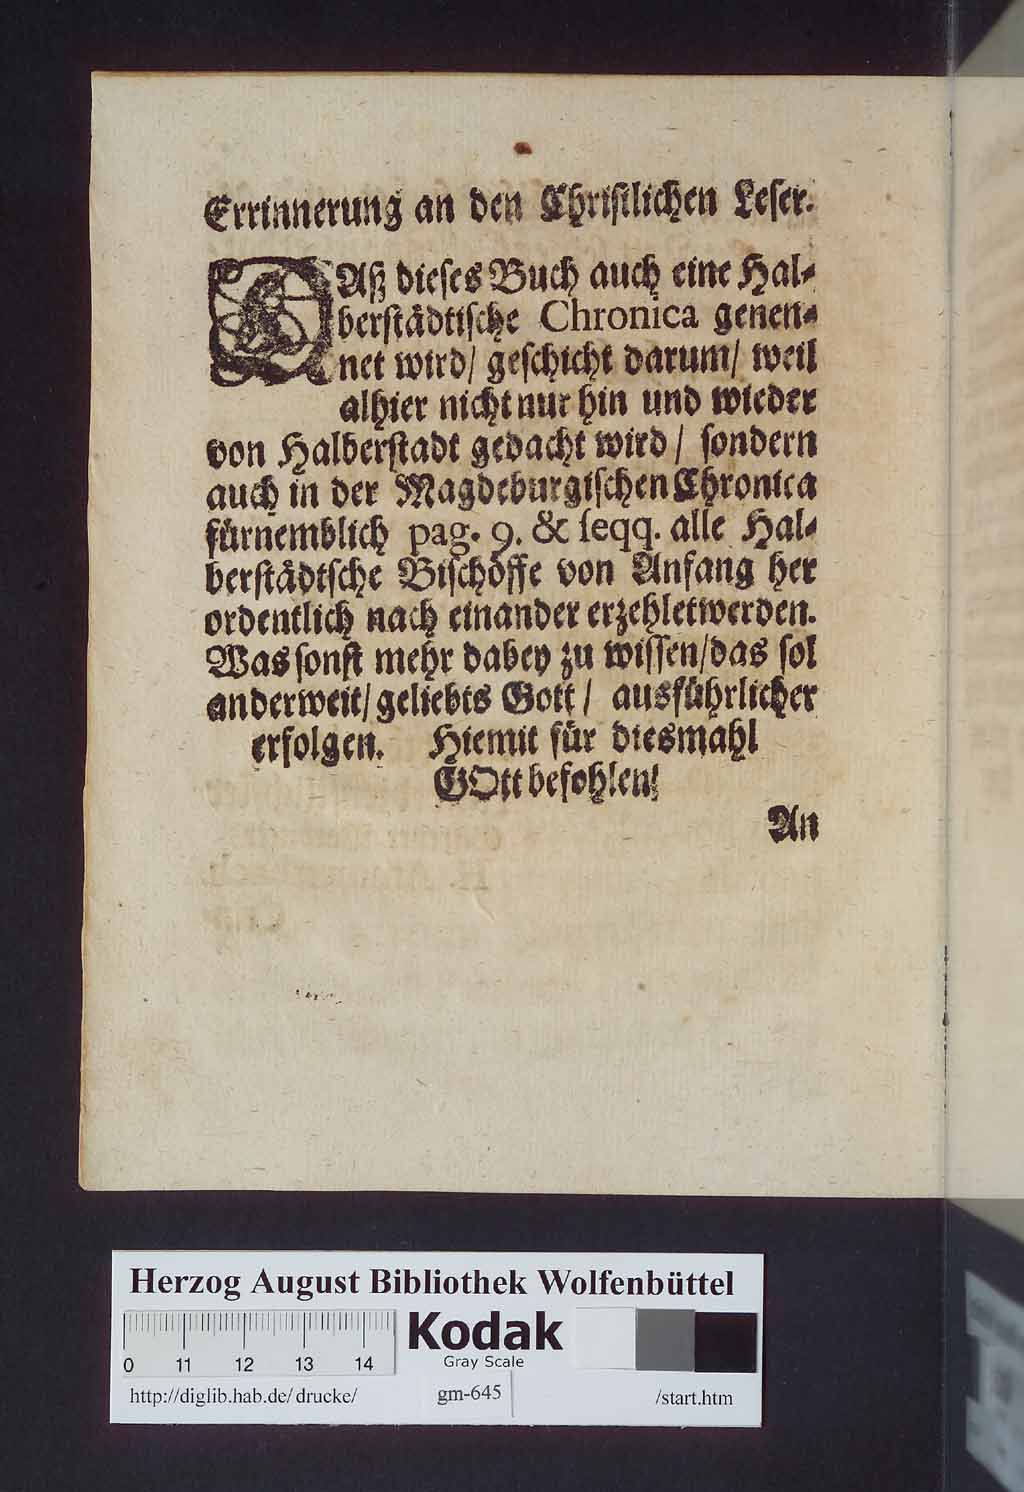 Errinnerung an den Christlichen Leser.
DAß dieses Buch auch eine Hal-
berstädtische Chronica genen-
net wird/ geschicht darum/ weil
alhier nicht nur hin und wieder
von Halberstadt gedacht wird/ sondern
auch in der Magdeburgischen Chronica
fürnemblich pag. 9. & seqq. alle Hal-
berstädtsche Bischöffe von Anfang her
ordentlich nach einander erzehlet werden.
Was sonst mehr dabey zu wissen/ das sol
anderweit/ geliebts Gott/ ausführlicher
erfolgen. Hiemit für diesmahl
GOtt befohlen!
An
Herzog August Bibliothek Wolfenbüttel
Kodak
Gray Scale
0 11 12 13 14
http://diglib.hab.de/drucke/ gm-645 /start.htm